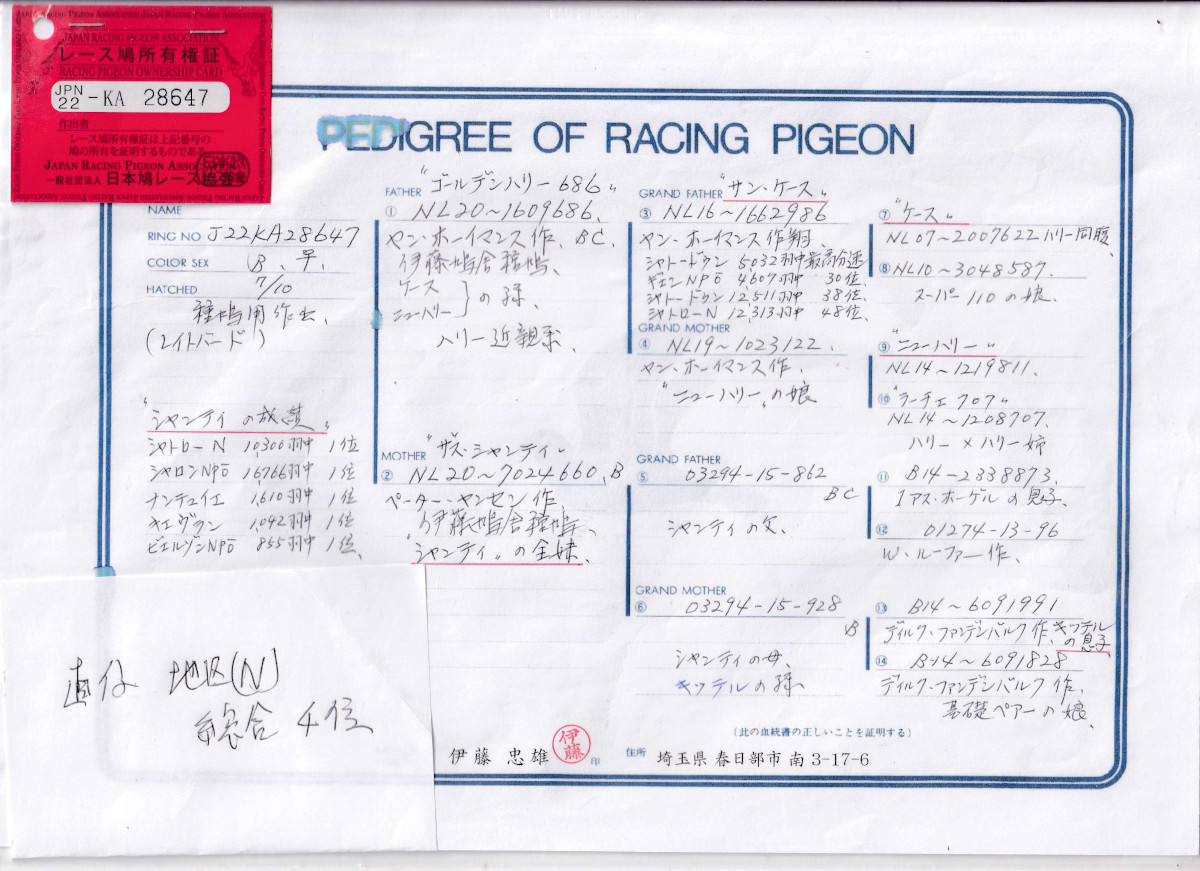 JAPAN RACING PIGEON ASSOCIATION
レース鳩所有権証
RACING PIGEON OWNERSHIP CARD
JPN 22 -KA 28647
作出者
レース鳩所有権証は上記番号の
鳩の所有を証明するものである
JAPAN RACING PIGEON ASSOCIATION
一般社団法人 日本鳩レース協会
PEDIGREE OF RACING PIGEON
NAME
RING NO J22KA28647
COLOR SEX B、♀.
HATCHED 7/10
種鳩用作出
(レイトバード)
"シャンティの放賞"
シャトローN 10,300羽中 1位
シャロンNPO 16,766羽中 1位
ナンテュイエ 1,610羽中 1位
キエヴラン 1,042羽中 1位
ビエルゾンNPO 855羽中 1位、
直仔 地区(N)
総合 4位
FATHER "ゴールデンハリー686"
① NL20~1609686、
ヤン・ホーイマンス作、BC、
伊藤鳩舎種鳩、
ケース
ニューハリー } の孫、
ハリー近親系、
MOTHER "ザ・シャンティ"
② NL20~7024660、B
ペーター・ヤンセン作
伊藤鳩舎種鳩、
"シャンティ"の全妹、
GRAND FATHER "サン・ケース"
③ NL16~1662986
ヤン・ホーイマンス作翔、
シャトードゥン 5032羽中最高分速
ギエンNPO 4,607羽中 30位、
シャトードゥン 12,511羽中 38位、
シャトローN 12,313羽中 48位、
GRAND MOTHER
④ NL19~1023122、
ヤン・ホーイマンス作、
"ニューハリー"の娘
GRAND FATHER
⑤ 03294-15-862
BC
シャンティの父、
GRAND MOTHER
⑥ 03294-15-928
B
シャンティの母、
キッテルの孫
⑦ "ケース"
NL07~2007622 ハリー同腹
⑧ NL10~3048587、
スーパー110の娘、
⑨ "ニューハリー"
NL14~1219811、
⑩ "ラーチェ707"
NL14~1208707、
ハリー×ハリー姉
⑪ B14-2338873、
1アス・ホーゲルの息子、
⑫ 01274-13-96
W・ルーファー作、
⑬ B14~6091991
ディルク・ファンデンバルク作、キッテル
の息子、
⑭ B14~6091828
ディルク・ファンデンバルク作、
基礎ペアーの娘、
(此の血統書の正しいことを証明する)
伊藤 忠雄 伊藤 印 住所 埼玉県 春日部市 南 3-17-6